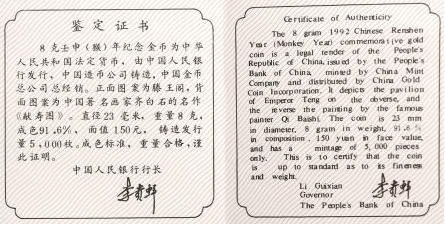 鉴定证书
8克壬申(猴)年纪念金币为中华
人民共和国法定货币，由中国人民银
行发行，中国造币公司铸造，中国金币
总公司总经销。正面图案为滕王阁，背
面图案为中国著名画家齐白石的名作
《献寿图》。直径23毫米，重量8克，
成色91.6%，面值150元，铸造发行
量5,000枚。成色标准，重量合格，谨
此证明。
中国人民银行行长
Certificate of Authenticity
The 8 gram 1992 Chinese Renshen
Year (Monkey Year) commemorative gold
coin is a legal tender of the People's
Republic of China, issued by the People's
Bank of China, minted by China Mint
Company and distributed by China Gold
Coin Incorporation. It depicts the pavilion
of Emperor Teng on the obverse, and
the reverse the painting by the famous
painter Qi Baishi. The coin is 23 mm
in diameter, 8 gram in weight, 91.6%
in compotation, 150 yuan in face value,
and has a mintage of 5,000 pieces
only. This is to certify that the coin
is up to standard as to its fineness
and weight.
Li Guixian
Governor
The People's Bank of China